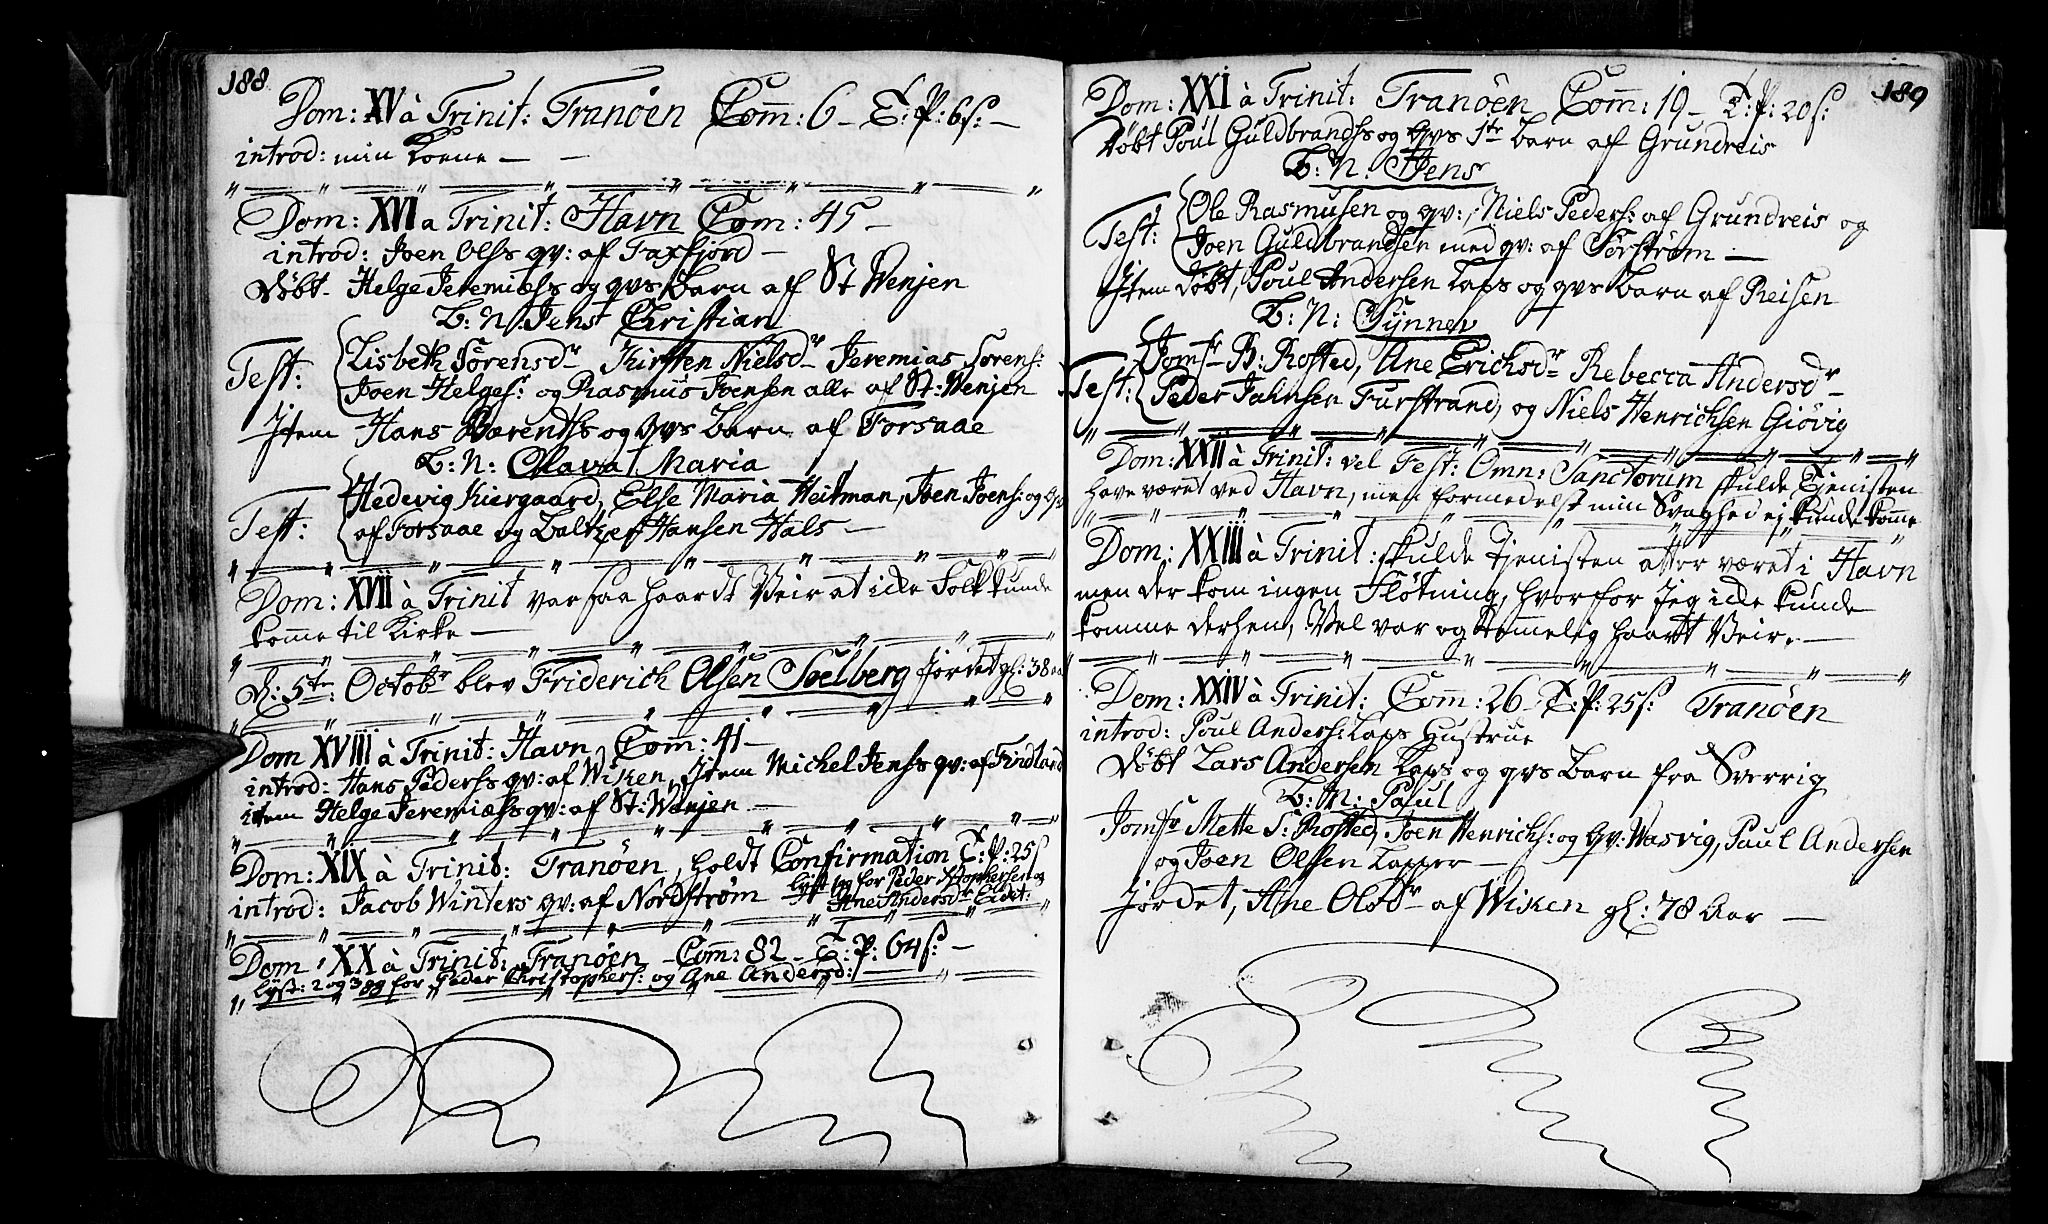 188
Dom: XV à Trinit: Tranöen Com: 6 – T: P: 6 s: –
introd: min Kone –
Dom: XVI a Trinit: Havn Com: 45 –
introd: Joen Olss qv: af Faxfjord –
Döbt Helge Jeremiess og qvs barn af St Wenjen
B: N: Jens Christian
Test: Lisbeth Sörensdr Kirsten Nielsdr Jeremias Sörens:
Joen Helges: og Rasmus Joensen alle af St: Wenjen
Item Hans Bærentss og qvs barn af Forsaae
B: N: Olava Maria
Test: Hedevig Kiergaard, Else Maria Heitman, Joen Joens: og qv:
af Forsaae og Baltzer Hansen Hals –
Dom: XVII à Trinit var saa haardt Veir at icke Folk kunde
komme til Kirke –
d: 5te: Octobr blev Friderich Olsen Soelberg jordet gl: 38 aar
Dom XVIII à Trinit: Havn Com: 41 –
introd: Hans Pederss qv: af Wiken, Item Michel Jenss qv: af Findland
item Helge Jeremiæss qv: af St: Wenjen –
Dom: XIX à Trinit: Tranöen, holdt Confirmation T: P: 25 s
introd: Jacob Winters qv: af Nordström lyst 1 g for Peder Xstophersen og
Ane Andersdr Eidet:
Dom: XX à Trinit: Tranöen – Com: 82 – T: P: 64 s: –
lyst: 2 og 3 gg for Peder Christophers: og Ane Andersd:
189
Dom: XXI à Trinit: Tranöen Com: 19 – T: P: 20 s:
Döbt Poul Guldbrandss og qvs barn af Grundreis
B: N: Jens
Test: Ole Rasmusen og qv:, Niels Peders: af Grundreis og
Joen Guldbrandsen med qv: af Sörström –
Item döbt, Poul Andersen Laps og qvs barn af Reisen
B: N: Synnev
Test: Jomfr B: Rosted, Ane Ericksdr Rebecca Andersdr
Peder Jahnsen Furstrand, og Niels Henrichsen Giövig
Dom: XXII à Trinit: vel Fest: Omn: Sanctorum skulde Tjenisten
have været ved Havn, men formedelst min Svaghed ej kunde komme
Dom: XXIII à Trinit: skulde Tjenisten atter været i Havn
men der kom ingen Flötning, hvorfor Jeg icke kunde
komme derhen, Vel var og temmelig haardt Veir. –
Dom: XXIV à Trinit: Com: 26 – T: P: 25 s: Tranöen
introd: Poul Anders: Laps Hustrue
Döbt Lars Andersen Laps og qvs barn fra Sverrig
B: N: Paul
Jomfr Mette S: Rosted, Joen Henrichs: og qv: Wasvig, Paul Andersen
og Joen Olsen Lapper –
Jordet, Ane Olsdr af Wiken gl: 78 Aar –